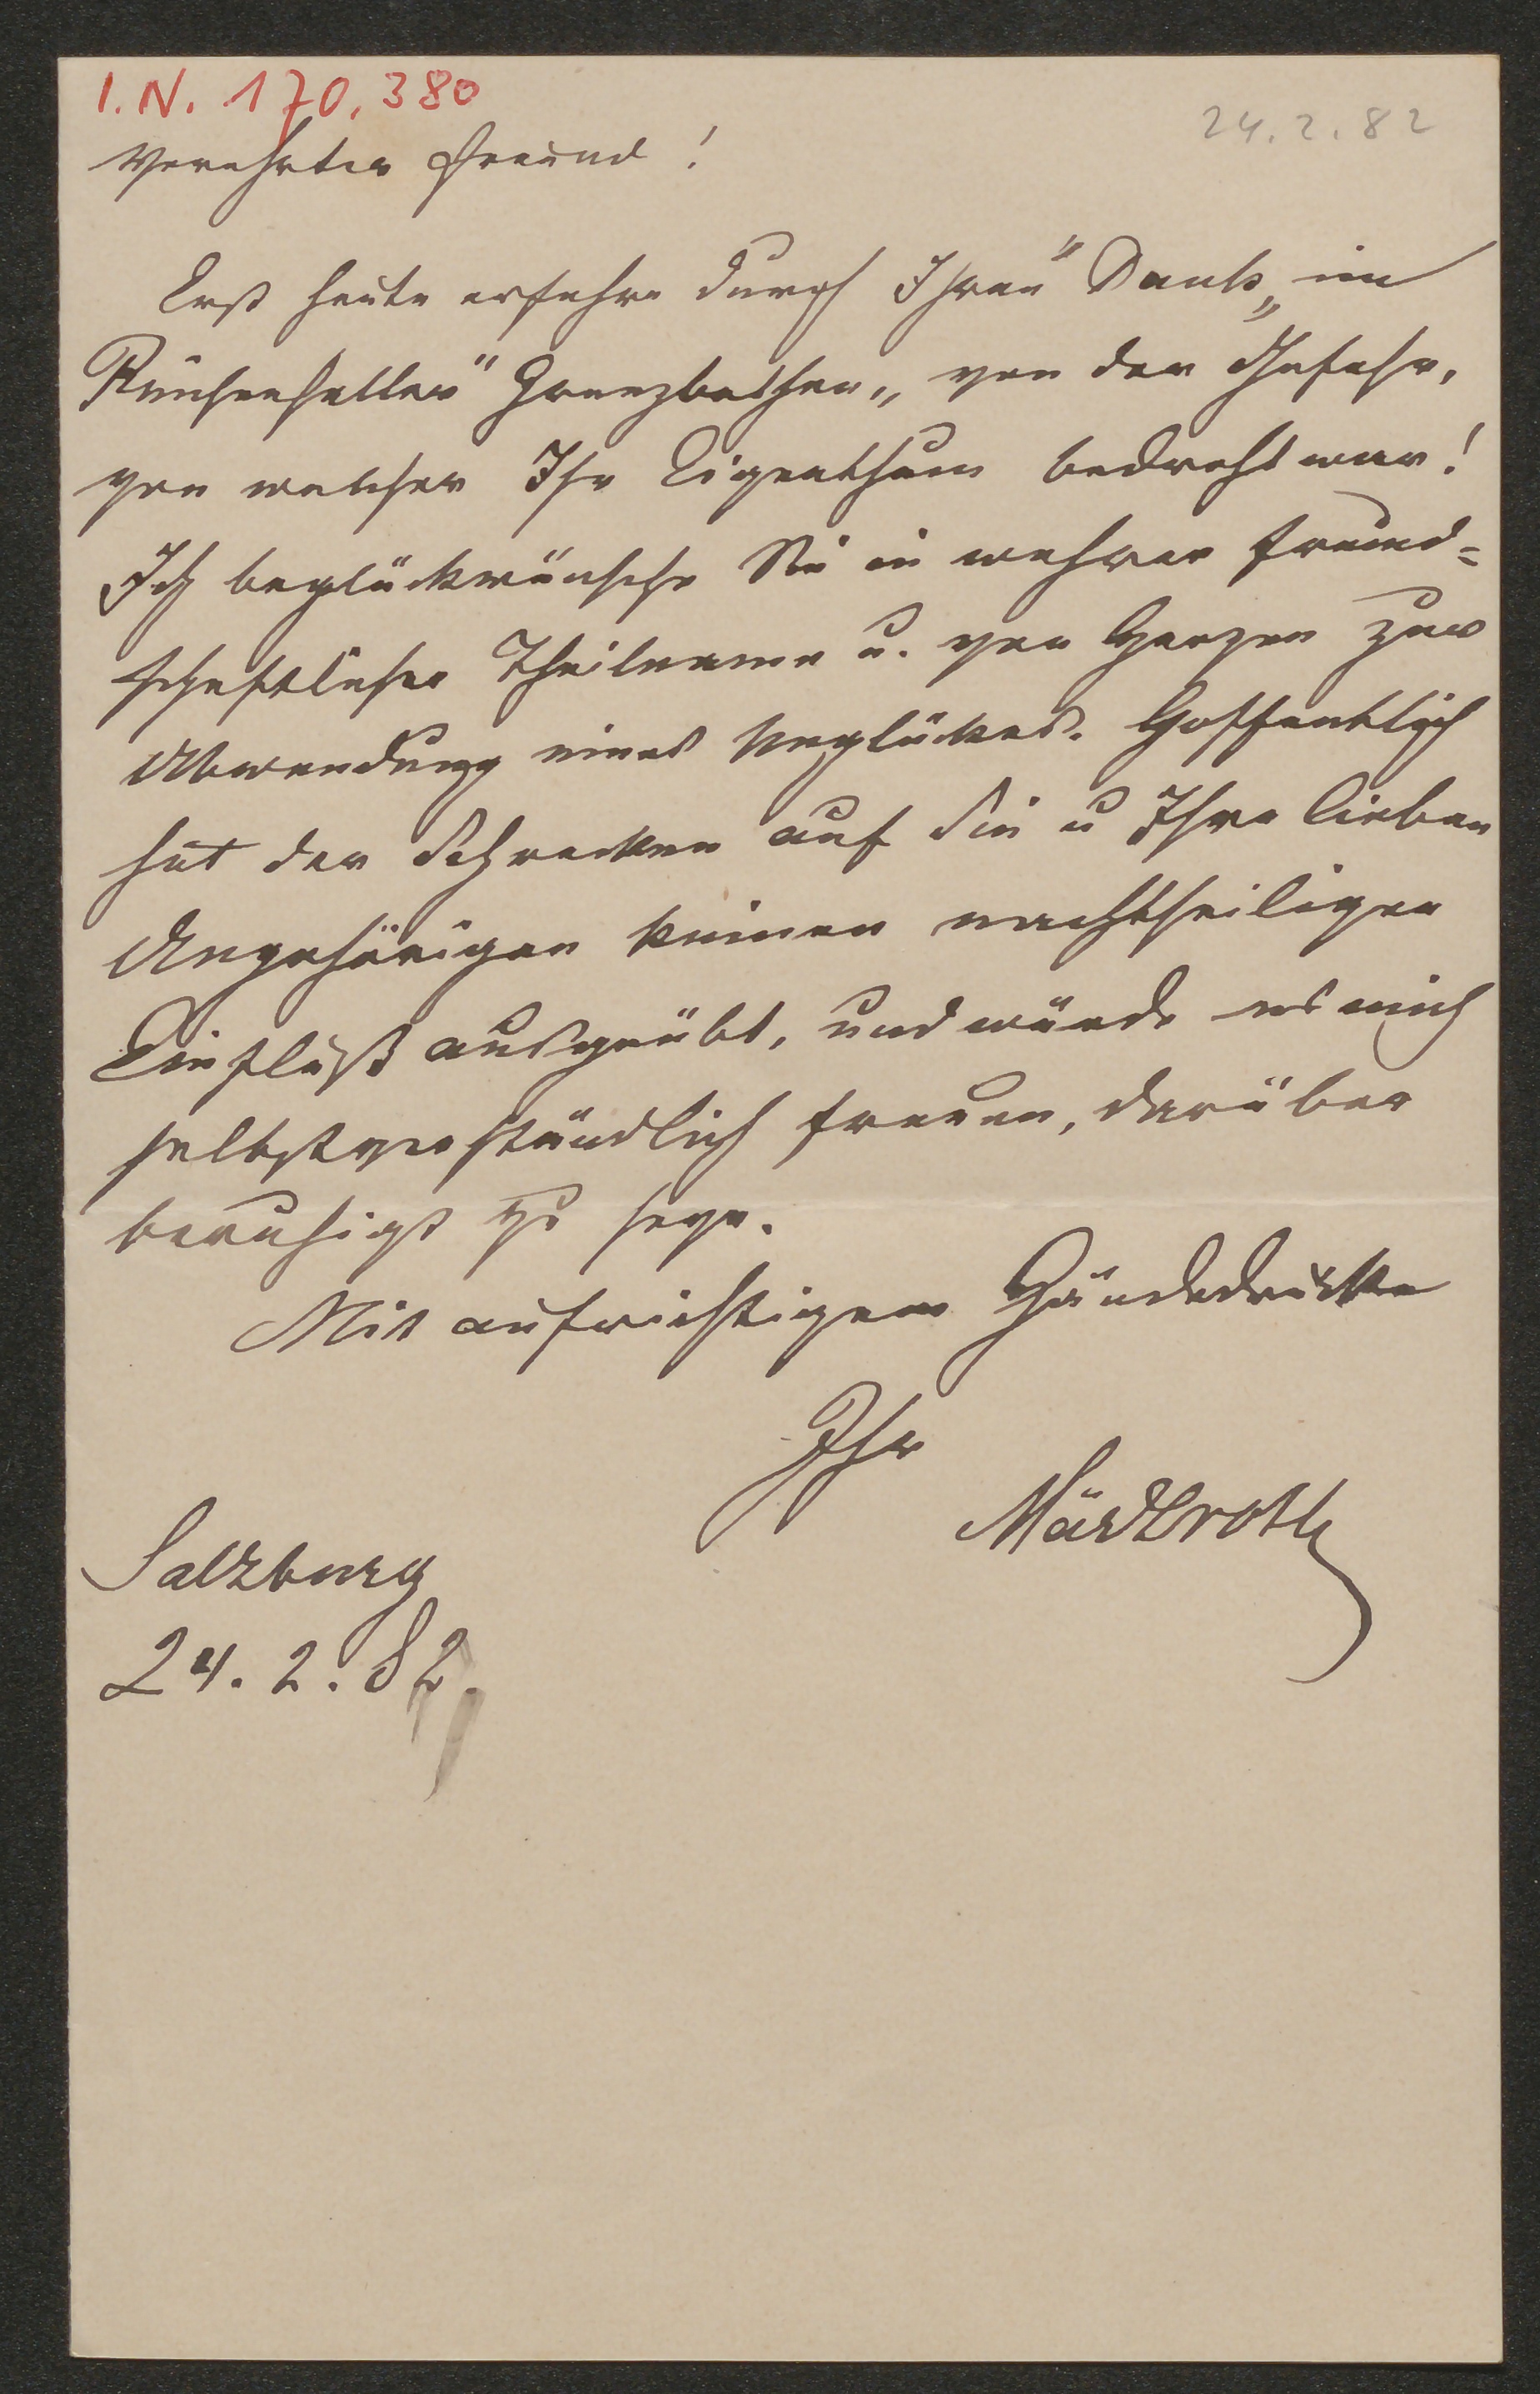 I.N. 170.380
24.2.82
Verehrter Freund!
Erst heute erfahre durch Ihren "Dank" im
Reichenhaller "Grenzbothen" von der Gefahr,
von welcher Ihr Eigenthum bedroht war!
Ich beglückwünsche Sie in wahrer freund=
schaftlicher Theilname u. von Herzen zur
Abwendung eines Unglückes. Hoffentlich
hat der Schrecken auf Sie u Ihre lieben
Angehörigen keinen nachtheiligen
Einfluß ausgeübt, und würde es mich
selbstverständlich freuen, darüber
beruhigt zu seyn.
Mit aufrichtigem Händedrucke
Ihr
Märzroth
Salzburg
24.2.82.